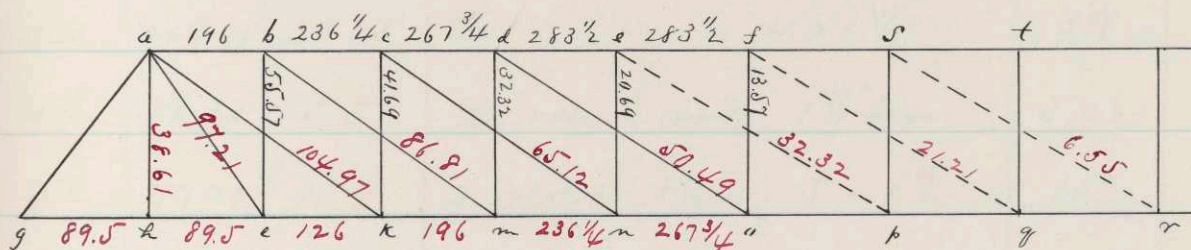 a 196 b 236 1/4 c 267 3/4 d 283 1/2 e 283 1/2 f s t
38.61 97.21 55.57 104.97 41.69 86.81 32.32 65.12 20.69 50.49 13.57 32.32 21.21 6.55
g 89.5 h 89.5 e 126 k 196 m 236 1/4 n 267 3/4 o p q r